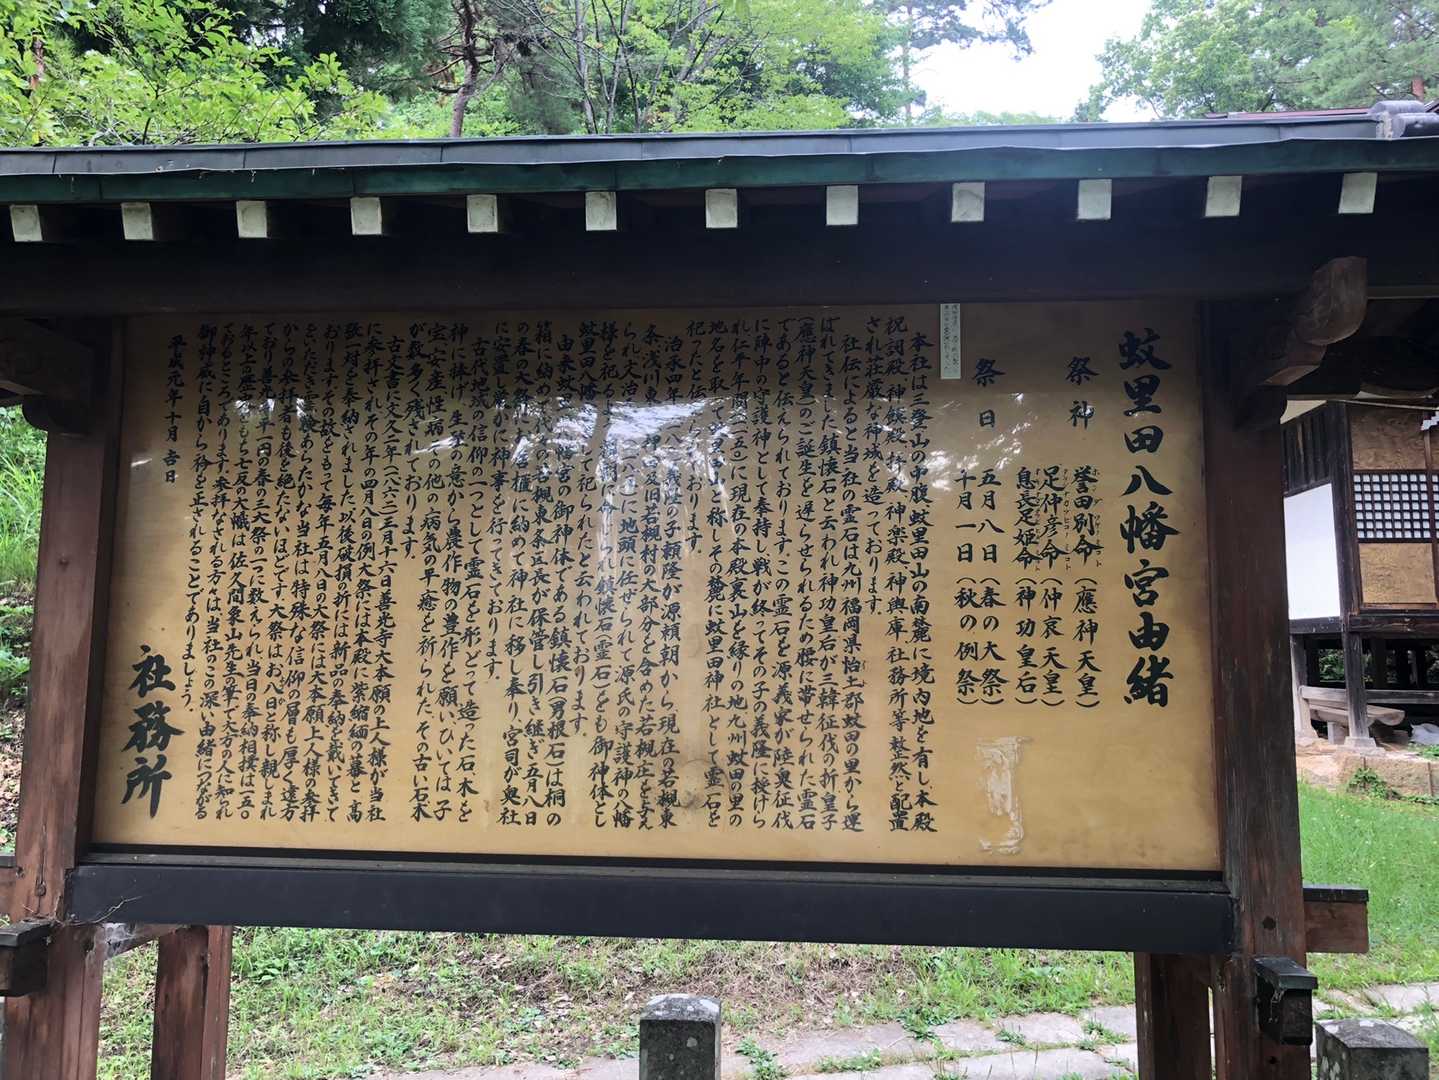 蚊里田八幡宮由緒
祭神
誉田別命（應神天皇）
足仲彦命（仲哀天皇）
息長足姫命（神功皇后）
祭日
五月八日（春の大祭）
十月一日（秋の例祭）
本社は三登山の中腹、蚊里田山の南麓に境内地を有し、本殿
祝詞殿、神饌殿、拝殿、神楽殿、神輿庫、社務所等整然と配置
され荘厳な神域を造っております。
社伝によると当社の霊石は九州福岡県怡土郡蚊田の里から運
ばれてきました鎮懐石と云われ神功皇后が三韓征伐の折皇子
（應神天皇）のご誕生を遅らせられるため腰に帯せられた霊石
であると伝えられております。この霊石を源義家が陸奥征伐
に陣中の守護神として奉持し戦が終ってその子の義隆に授けら
れ仁平年間（一一五一）に現在の本殿裏山を縁りの地九州蚊田の里の
地名を取って蚊里田山と称しその麓に蚊里田神社として霊石を
祀ったと伝えております。
治承四年（一一八〇）義隆の子頼隆が源頼朝から、現在の若槻東
条、浅川東条、神田及旧若槻村の大部分を含めた若槻庄を与え
られ文治 に地頭に任ぜられて源氏の守護神の八幡
様を祀るよう 命ぜられ鎮懐石（霊石）をも御神体とし
蚊里田八幡 して祀られたと云われております。
由来蚊里田八幡宮の御神体である鎮懐石（男根石）は桐の
箱に納めて代々の若槻東条区長が保管し引き継ぎ五月八日
の春の大祭にお唐櫃に納めて神社に移し奉り、宮司が奥社
に安置し厳かに神事を行ってきております。
古代地域の信仰の一つとして霊石を形どって造った石木を
神に捧げ、生産の意から農作物の豊作を願い、ひいては子
宝、安産、性病、その他の病気の早癒を祈られた、その古い石木
が数多く残されております。
古文書に文久二年（一八六二）三月十六日善光寺大本願の上人様が当社
に参拝されその年の四月八日の例大祭には本殿に紫縮緬の幕と高
張一対を奉納されました。以後破損の折には新品の奉納を戴いてきて
おりますその故をもって毎年五月八日の大祭には大本願上人様の参拝
をいただき霊験あらたかな当社は特殊な信仰の層も厚く遠方
からの参拝者も後を絶たないほどです。大祭はお八日と称し親しまれ
ており善光寺平一円の春の三大祭の一つに数えられ、当日の奉納相撲は一五〇
年以上の歴史をもち七反の大幟は佐久間象山先生の筆で大方の人に知られ
ておるところであります。参拝なされる方々は当社のこの深い由緒につながる
御神威に自から衿を正されることでありましょう。
平成元年十月吉日
社務所